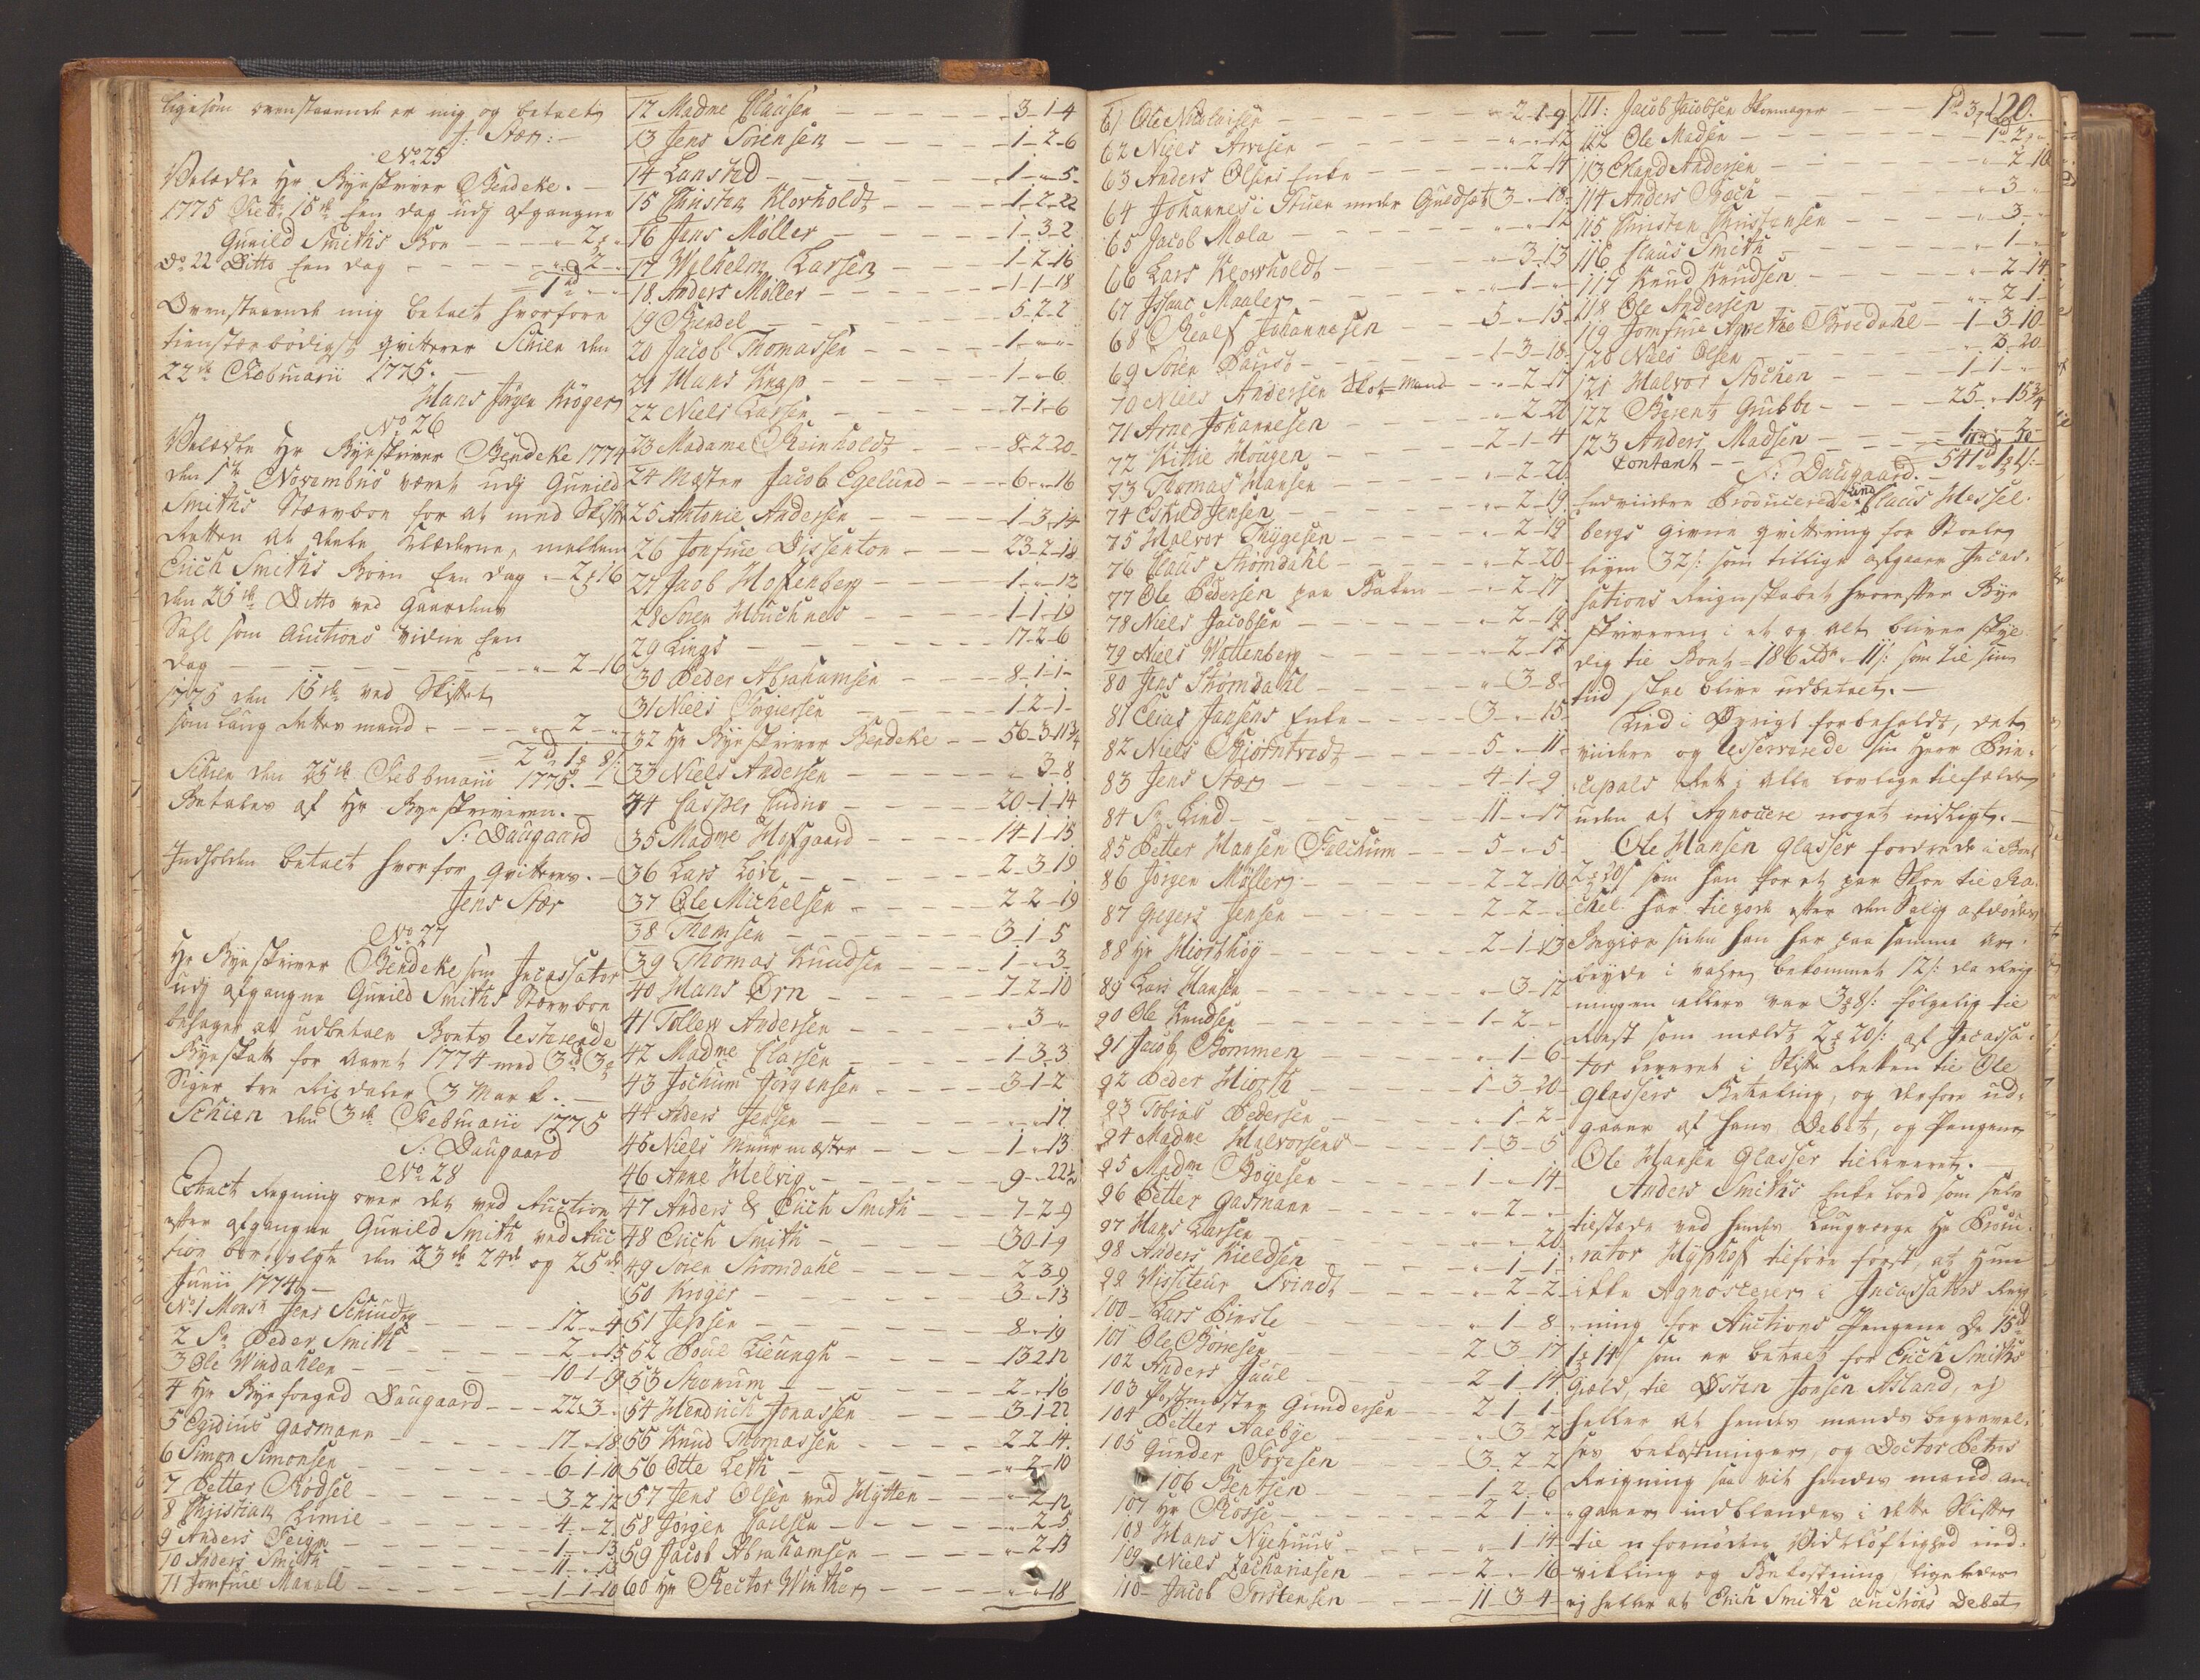 ligesom ovenstaaende er mig og betalt
J: Stær:-
No 25
Velædle Hr Byeskriver Bendeke.-
1775 Febr 15de Een dag udj afgangne
Gunild Smiths Boe - - - " 2 " "
Do 22 Ditto Een dag - - - - " 2 - "
= 1rd " "
Ovenstaaende mig betalt hvorfore
tienstærbødigst qvitterer Schien den
22de Februarii 1775.-
Hans Jørgen Krøger
No 26
Velædle Hr Byeskriver Bendeke 1774
den 1te Novembris været udj Gunild
Smiths Stervboe for at med Skifte
Retten at deele Klæderne, mellem
Erich Smiths Børn Een dag - 2 16
den 25de Ditto ved Gaardens
Sahl som Auctions Vidne Een
dag - - - - - - - " - 2 - 16
1775 den 15de ved Skiftet
som Laug Rettes mand - - - " 2 - "
= 2rd 1 8/:
Schien den 25de Februarii 1775.-
Betales af Hr Byeskriveren.-
S: Daugaard
Indholden betalt hvorfor qvitteres.-
Jens Stær
No 27
Hr Byeskriver Bendeke som Incassator
udj afgangne Gunild Smiths Stervboe
behager at udbetale Boets resterende
Byeskatt for Aaret 1774 med 3rd 3
Siger tre Rixdaler 3 Mark.-
Schien den 3de Februarii 1775
S: Daugaard
No 28
Extract Regning over det ved Auction
efter afgangne Gunild Smith ved Auc
tion bortsolgte den 23de 24de og 25de
Junii 1774.-
No 1 Monsr Jens Schindty - - - 12 - " 4
2 Sr Peder Smith - - - 2 - " 15
3 Ole Windahlen - - - 10 - 1 - 9
4 Hr Byefoged Daugaard - - - 22 - 3 - "
5 Egidius Gasmann - - - 17 - " 18
6 Simon Simonsen - - - 6 - 1 - 10
7 Petter Rødsel - - - 3 - 2 - 12
8 Christian Limie - - - 4 - " 2
9 Anders Feign - - - 1 - " 13
10 Anders Smith - - - 11 - " 13
11 Jomfrue Manall - - - 1 - 1 - 10
12 Madme Clausen - - - 3 - 1 - 4
13 Jens Sørensen - - - 1 - 2 - 6
14 Lansted - - - 1 - " - 5
15 Christen Klovholdt - - - 1 - 2 - 22
16 Jens Møller - - - 1 - 3 - 2
17 Wilhelm Larsen - - - 1 - 2 - 16
18 Anders Møller - - - 1 - 1 - 18
19 Brendel - - - 5 - 2 - 2
20 Jacob Thomassen - - - 1 - " - "
21 Hans Knap - - - 1 - " - 6
22 Niels Larsen - - - 7 - 1 - 6
23 Madame Reinholdt - - - 8 - 2 - 20
24 Mæster Jacob Egelund - - - 6 - " - 16
25 Antonie Andersen - - - 1 - 3 - 14
26 Jomfrue Dissenton - - - 23 - 2 - 18
27 Jacob Hoffenberg - - - 1 - " - 12
28 Søren Houchnes - - - 1 - 1 - 19
29 Lings - - - 17 - 2 - 6
30 Peder Abrahamsen - - - 8 - 1 - 1
31 Niels Jørgensen - - - 1 - 2 - 1
32 Hr Byeskriver Bendeke - - 56 - 3 - 11 3/4
33 Niels Andersen - - - " 3 - 8
34 Casper Ludvig - - - 20 - 1 - 14
35 Madme Hofgaard - - - 14 - 1 - 15
36 Lars Løve - - - 2 - 3 - 19
37 Ole Michelsen - - - 2 - 2 - 19
38 Themsen - - - 3 - 1 - 5
39 Thomas Knudsen - - - 1 - " - 3
40 Hans Ørn - - - 7 - 2 - 10
41 Tollew Andersen - - - " 3 - "
42 Madme Classen - - - 1 - 3 - 3
43 Jochum Jørgensen - - - 3 - 1 - 2
44 Anders Jensen - - - " - " 17
45 Niels Muurmæster - - - 1 - " 13
46 Anne Helvig - - - 9 - " 22 1/2
47 Anders & Erich Smith - - - 7 - 2 - 9
48 Erich Smith - - - 30 - 1 - 9
49 Søren Strømdahl - - - 2 - 3 - 9
50 Krøger - - - 3 - " 13
51 Jepsen - - - 8 - " 19
52 Poul Lieungh - - - 13 - 2 - 12
53 Thronum - - - 2 - " 16
54 Hendrich Jonassen - - - 3 - 1 - 22
55 Knud Thomassen - - - 2 - 2 - 14
56 Otte Leth - - - " 2 - 10
57 Jens Olsen ved Hytten - - - " 2 - 12
58 Jørgen Poulsen - - - " 2 - 5
59 Jacob Abrahamsen - - - " 2 - 13
60 Hr Rector Winther - - - " " 18
61 Ole Nicolaisen - - - " 2 - 1 - 9
62 Niels Arvesen - - - " " 12
63 Anders Olsens Enke - - - " 2 - 14
64 Johannes i Stuen under Guldset 3 - " 18
65 Jacob Mæla - - - " " 12
66 Lars Klovholdt - - - " 3 - 13
67 Issaac Maaler - - - " 1 - "
68 Realf Johannesen - - - 5 - " 15
69 Søren Pauss - - - 1 - 3 - 18
70 Niels Andersen Skot-mand - - " 2 - 17
71 Arne Johannesen - - - " 2 - 20
72 Kittie Hougen - - - 2 - 1 - 4
73 Thomas Hansen - - - " 2 - 20
74 Eskild Jensen - - - " 2 - 19
75 Halvor Thygesen - - - " 2 - 19
76 Claus Strømdahl - - - " 2 - 20
77 Ole Pedersen paa Baken - - - " 2 - 17
78 Niels Jacobsen - - - " 2 - 19
79 Niels Wattenberg - - - " 2 - 17
80 Jens Strømdahl - - - " 3 - 8
81 Elias Jansens Enke - - - 3 - " 15
82 Niels Biørntvedt - - - 5 - " 11
83 Jens Stær - - - 4 - 1 - 9
84 Sr Lind - - - 11 - " 17
85 Petter Hansen Falchum - - - 5 - " 5
86 Jørgen Møller - - - 2 - 2 - 10
87 Gregers Jensen - - - 2 - 2 - "
88 Hr Hiorthøy - - - 2 - 1 - 13
89 Lars Hansen - - - " 3 - 12
90 Ole Knudsen - - - 1 - 2 - "
91 Jacob Bommen - - - " 1 - 6
92 Peder Hiorth - - - 1 - 3 - 20
93 Tobias Pedersen - - - " 1 - 2
94 Madme Halvorsens - - - 1 - 3 - 5
95 Madm Bøyesen - - - 1 - " 14
96 Petter Gasmann - - - " 2 - "
97 Hans Larsen - - - " " 20
98 Anders Kieldsen - - - " 1 - 1
99 Wissiteur Trindt - - - " 2 - 2
100 Lars Binsle - - - " 1 - 8
101 Ole Børresen - - - 2 - 3 - 17
102 Anders Juul - - - 2 - 1 - 14
103 Postmester Gundersen - - 2 - 1 - 1
104 Petter Aaebye - - - " 3 - 2
105 Gunder Toresen - - - 3 - 2 - 2
106 Bentsen - - - 1 - 2 - 6
107 Hr Rosse - - - 2 1 - "
108 Hans Nyehuus - - - " 1 - 14
109 Niels Zachariasen - - - 2 - " 16
110 Jacob Torstensen - - - 11 - 3 - 4
111: Jacob Jacobsen Skomager - - - 1rd 3
120.
112 Ole Madsen - - - 1 - 2 - "
113 Erland Andersen - - - " 2 - 10
114 Anders Bæch - - - " 3 - "
115 Christen Christensen - - - " 3 - "
116 Claus Smith - - - " 1 - "
117 Knud Knudsen - - - " 2 - 14
118 Ole Andersen - - - " 2 - 1
119 Jomfrue Agnethe Broedahl - 1 - 3 - 10
120 Niels Olsen - - - " 2 - 20
121 Halvor Stochen - - - 1 - 1 - "
122 Berent Grubbe - - - 25 - " 15 3/4
123 Anders Madsen - - - 1 - " 2
Contant - - 541rd 1 1/:
S: Daugaard.-
Endvidere Producerede Lind Claus Hessel-
bergs givne qvittering for Stoele
leyen 32/: som tillige afgaaer Incas-
sations Reignskabet hvorefter Bye
skriveren i et og alt bliver skyl
dig til Boet - 186 rdr - 11/: som til sin
tiid skal blive udbetalt.-
Lind i Øvrigt forbeholdt, dets
videre og reserverede sin Herr Prin-
cipals Ret i alle lovlige tilfælde
uden at Agnocere noget misligt.-
Ole Hansen Glasser fordrede i Boet
2 20/ som han for et par Skoe til Ra-
chel har tilgode efter den Salig afdødes
Begiær siden han har paa samme Ar-
beyde i vahre bekommet 12/: da Reig
ningen ellers var 3 8/: følgelig til
Rest som meldt 2 20/: af Incassa-
tor leveret i Skifte Retten til Ole
Glassers Betaling, og derfore ud-
gaaer af hans Debet, og Pengene
Ole Hansen Glasser tilleveret.-
Anders Smiths Enke lod som selv
tilstæde ved hendes Laugværge Hr Procu-
rator Hyphoff tilføre først, at hun
ikke Agnoscerer i Incassators Reig
ning for Auctions Pengene de 15rd
1 14/ som er betalt for Erich Smiths
Giæld, til Østen Jonsen Aaland, ej
heller at hendes mands begravel-
ses bekostninger, og Doctor Peters
Reigning saa vit hendes mand an-
gaaer indblandes i dette Skifte
til u fornøden Vidtløftighed ind-
vikling og Bekostning, ligeledes
ej heller at Erich Smith Auctions Debet